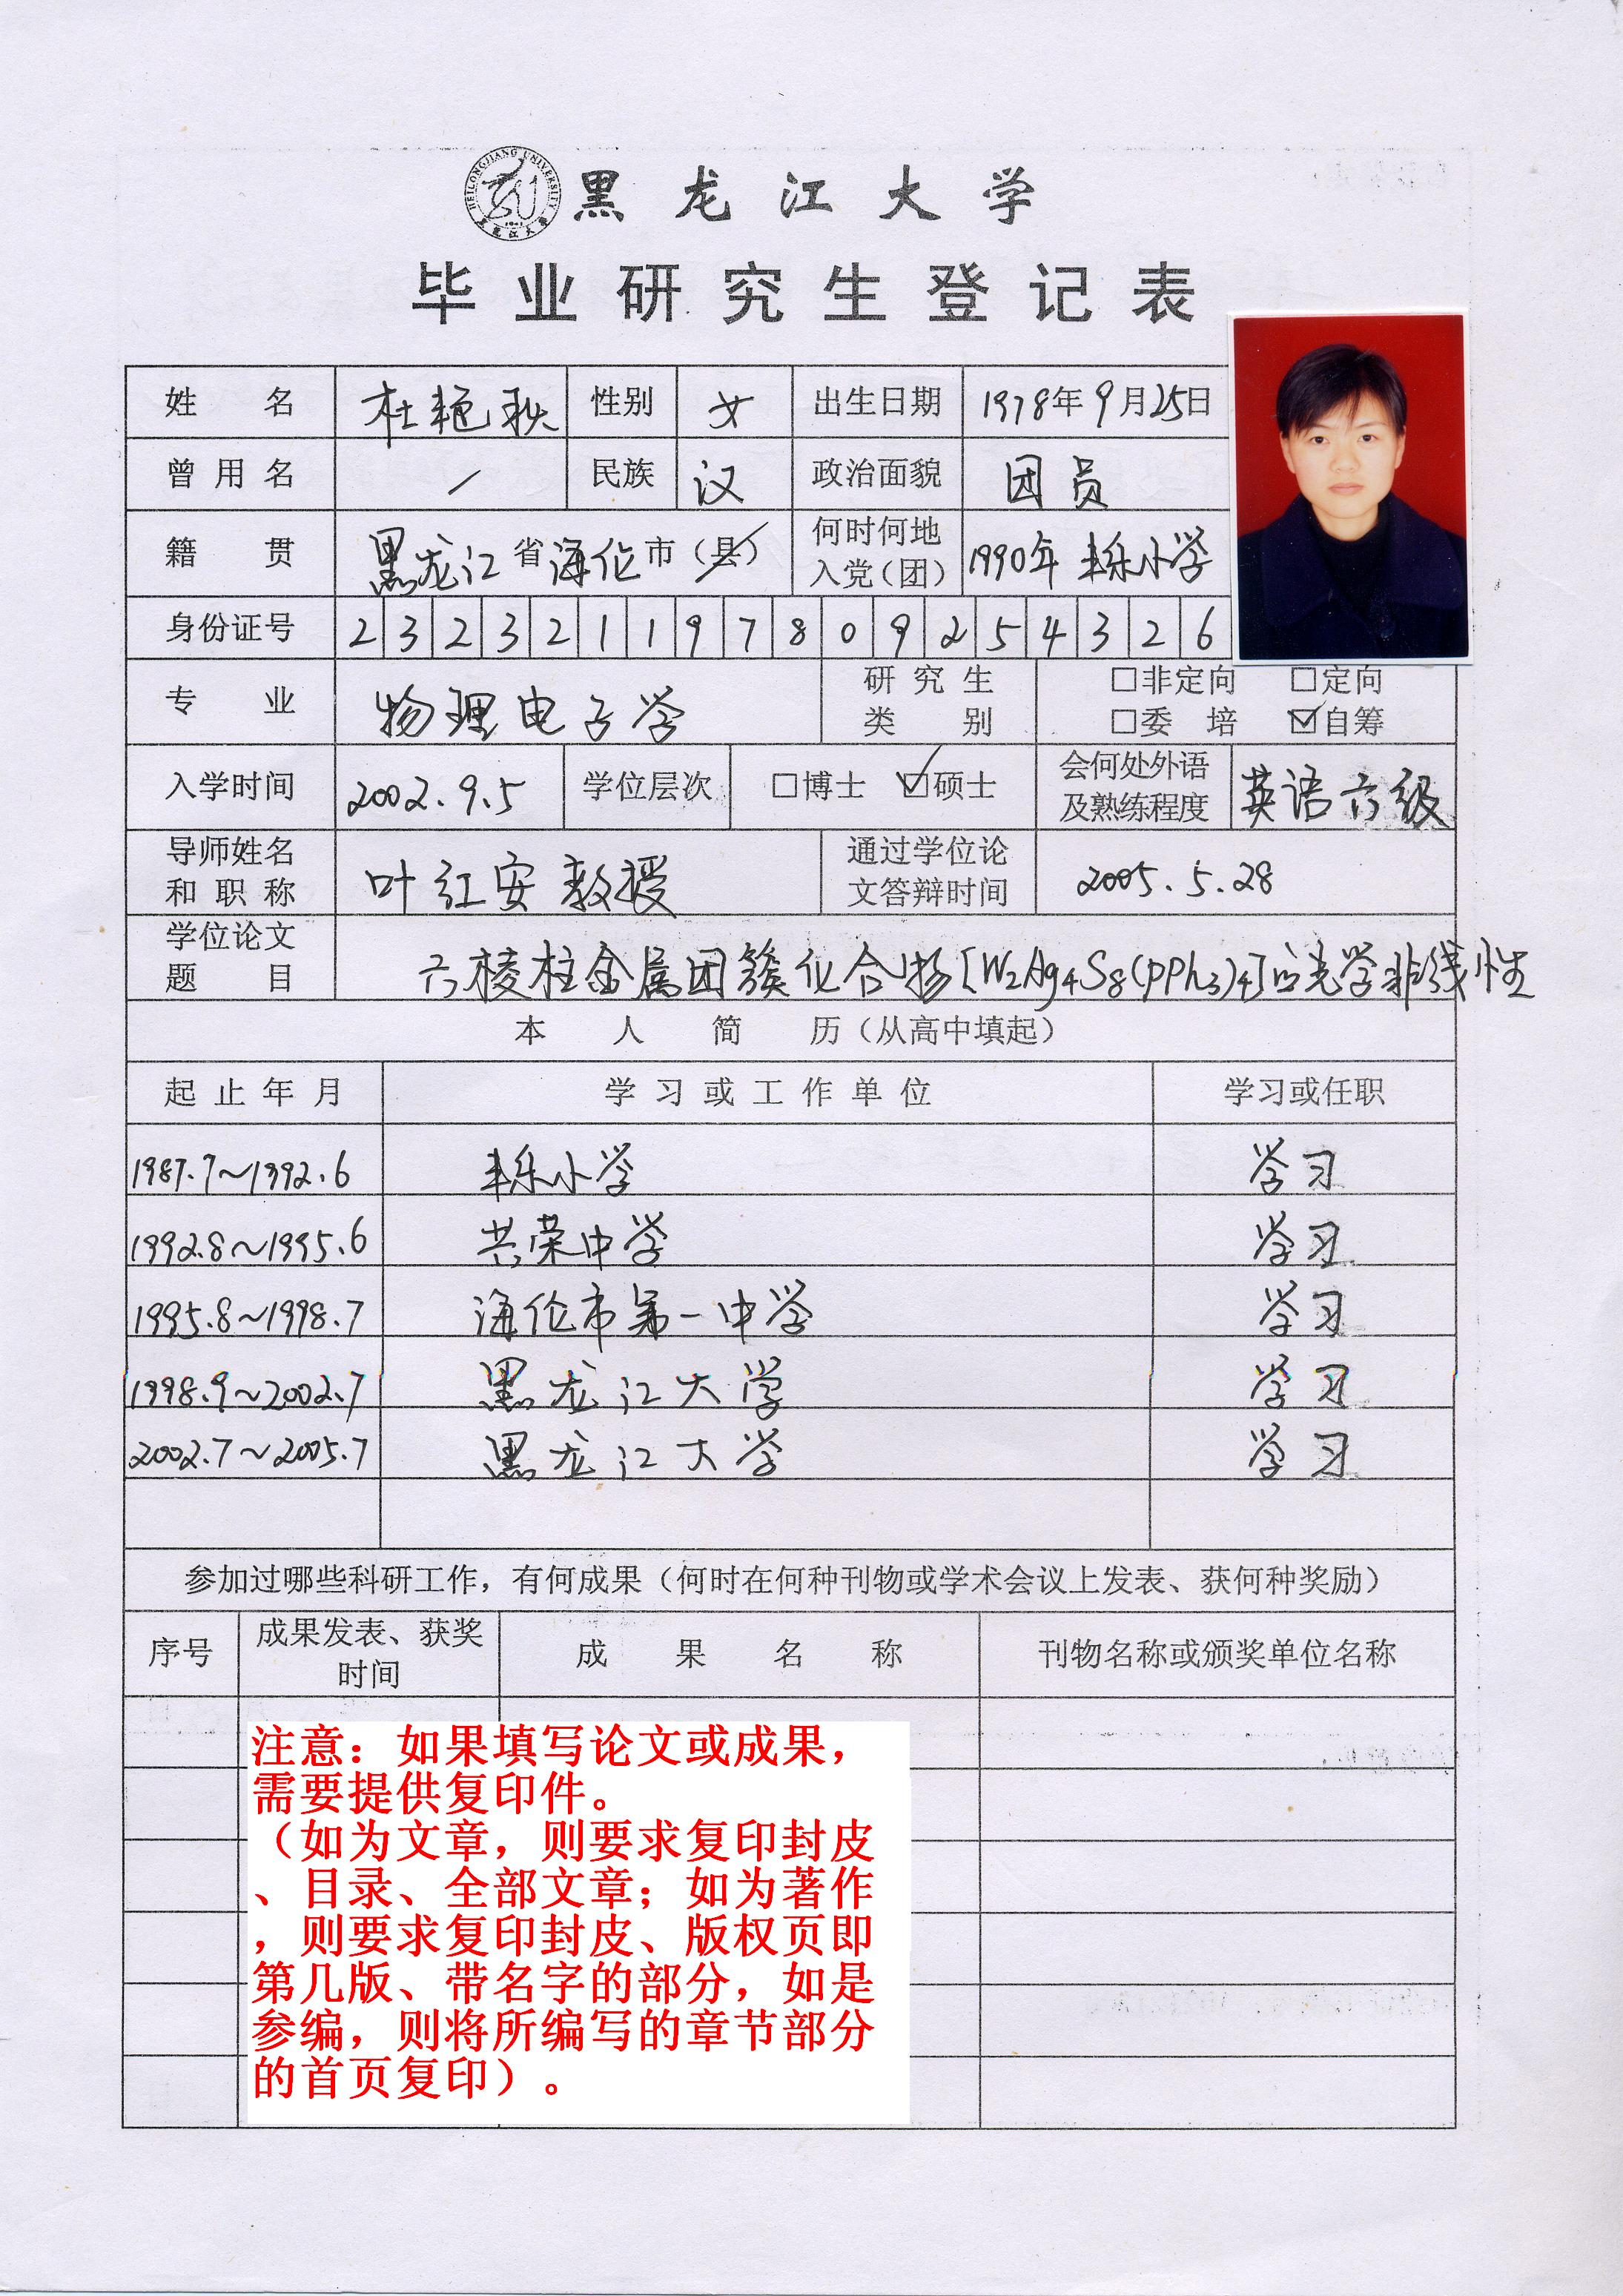 HEILONGJIANG UNIVERSITY
黑龙江大学
毕业研究生登记表
姓名 杜艳秋 性别 女 出生日期 1978年9月25日
曾用名 / 民族 汉 政治面貌 团员
籍贯 黑龙江省海伦市（县） 何时何地入党（团） 1990年 丰乐小学
身份证号 232321197809254326
专业 物理电子学 研究生类别 □非定向 □定向
□委培 ☑自筹
入学时间 2002.9.5 学位层次 □博士 ☑硕士 会何处外语及熟练程度 英语六级
导师姓名和职称 叶红安 教授 通过学位论文答辩时间 2005.5.28
学位论文题目 六棱柱金属团簇化合物[W2Ag4S8(PPh3)4]的光学非线性
本人简历（从高中填起）
起止年月 学习或工作单位 学习或任职
1987.7~1992.6 丰乐小学 学习
1992.8~1995.6 共荣中学 学习
1995.8~1998.7 海伦市第一中学 学习
1998.9~2002.7 黑龙江大学 学习
2002.7~2005.7 黑龙江大学 学习
参加过哪些科研工作，有何成果（何时在何种刊物或学术会议上发表、获何种奖励）
序号 成果发表、获奖时间 成果名称 刊物名称或颁奖单位名称
注意：如果填写论文或成果，
需要提供复印件。
（如为文章，则要求复印封皮
、目录、全部文章；如为著作
，则要求复印封皮、版权页即
第几版、带名字的部分，如是
参编，则将所编写的章节部分
的首页复印）。